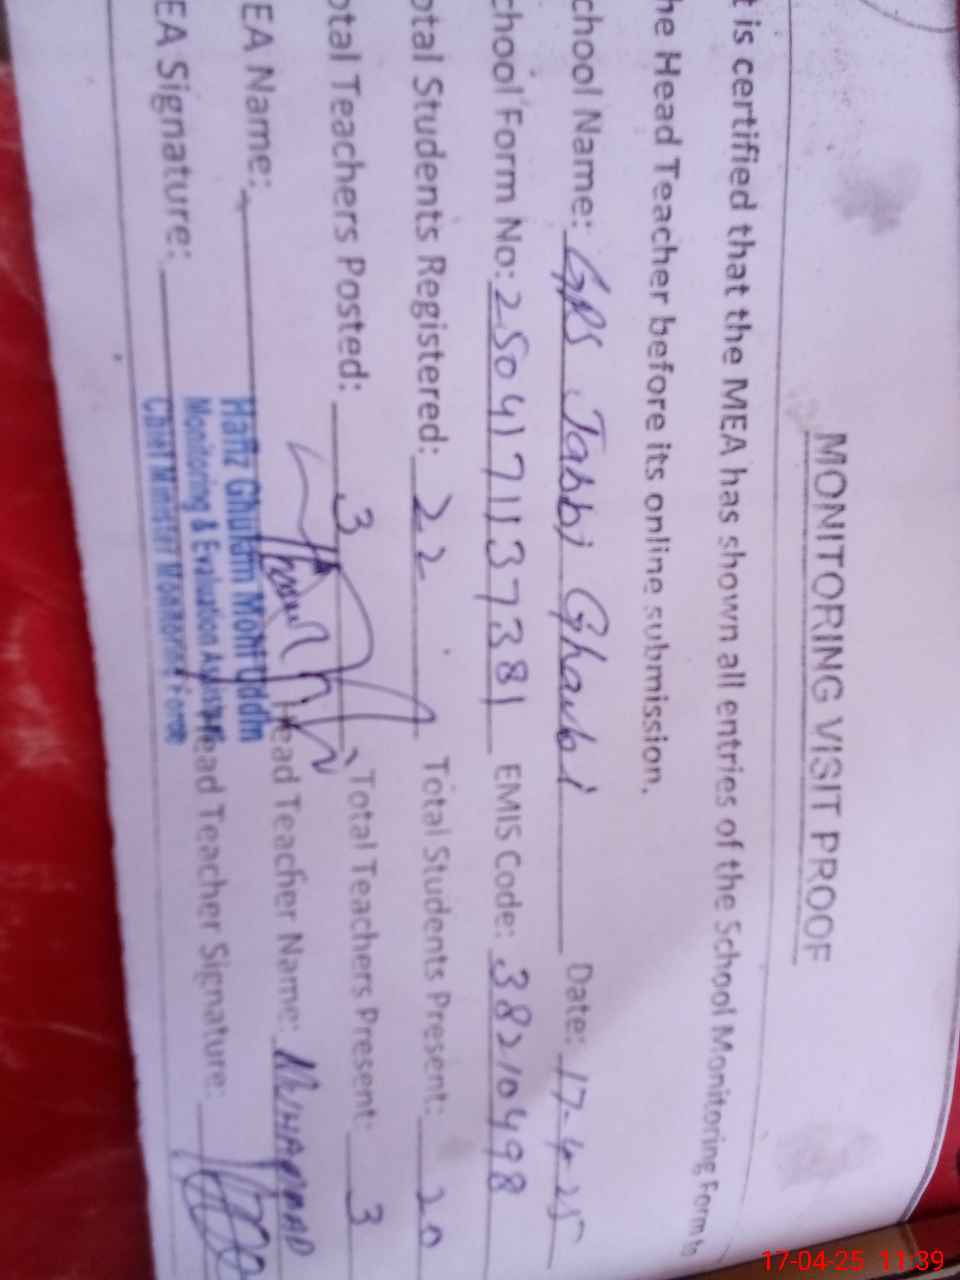 MONITORING VISIT PROOF
t is certified that the MEA has shown all entries of the School Monitoring Form to
he Head Teacher before its online submission.
chool Name: GPS Jabbi Gharbi Date: 17-4-25
chool Form No: 2504171137381 EMIS Code: 38210498
otal Students Registered: 22 Total Students Present: 20
otal Teachers Posted: 3 Total Teachers Present: 3
EA Name: Hafiz Ghulam Mohi Uddin ead Teacher Name: MUHAMMAD
Monitoring & Evaluation Assistant
EA Signature: Chief Minister Monitoring Force ead Teacher Signature:
17-04-25 11:39